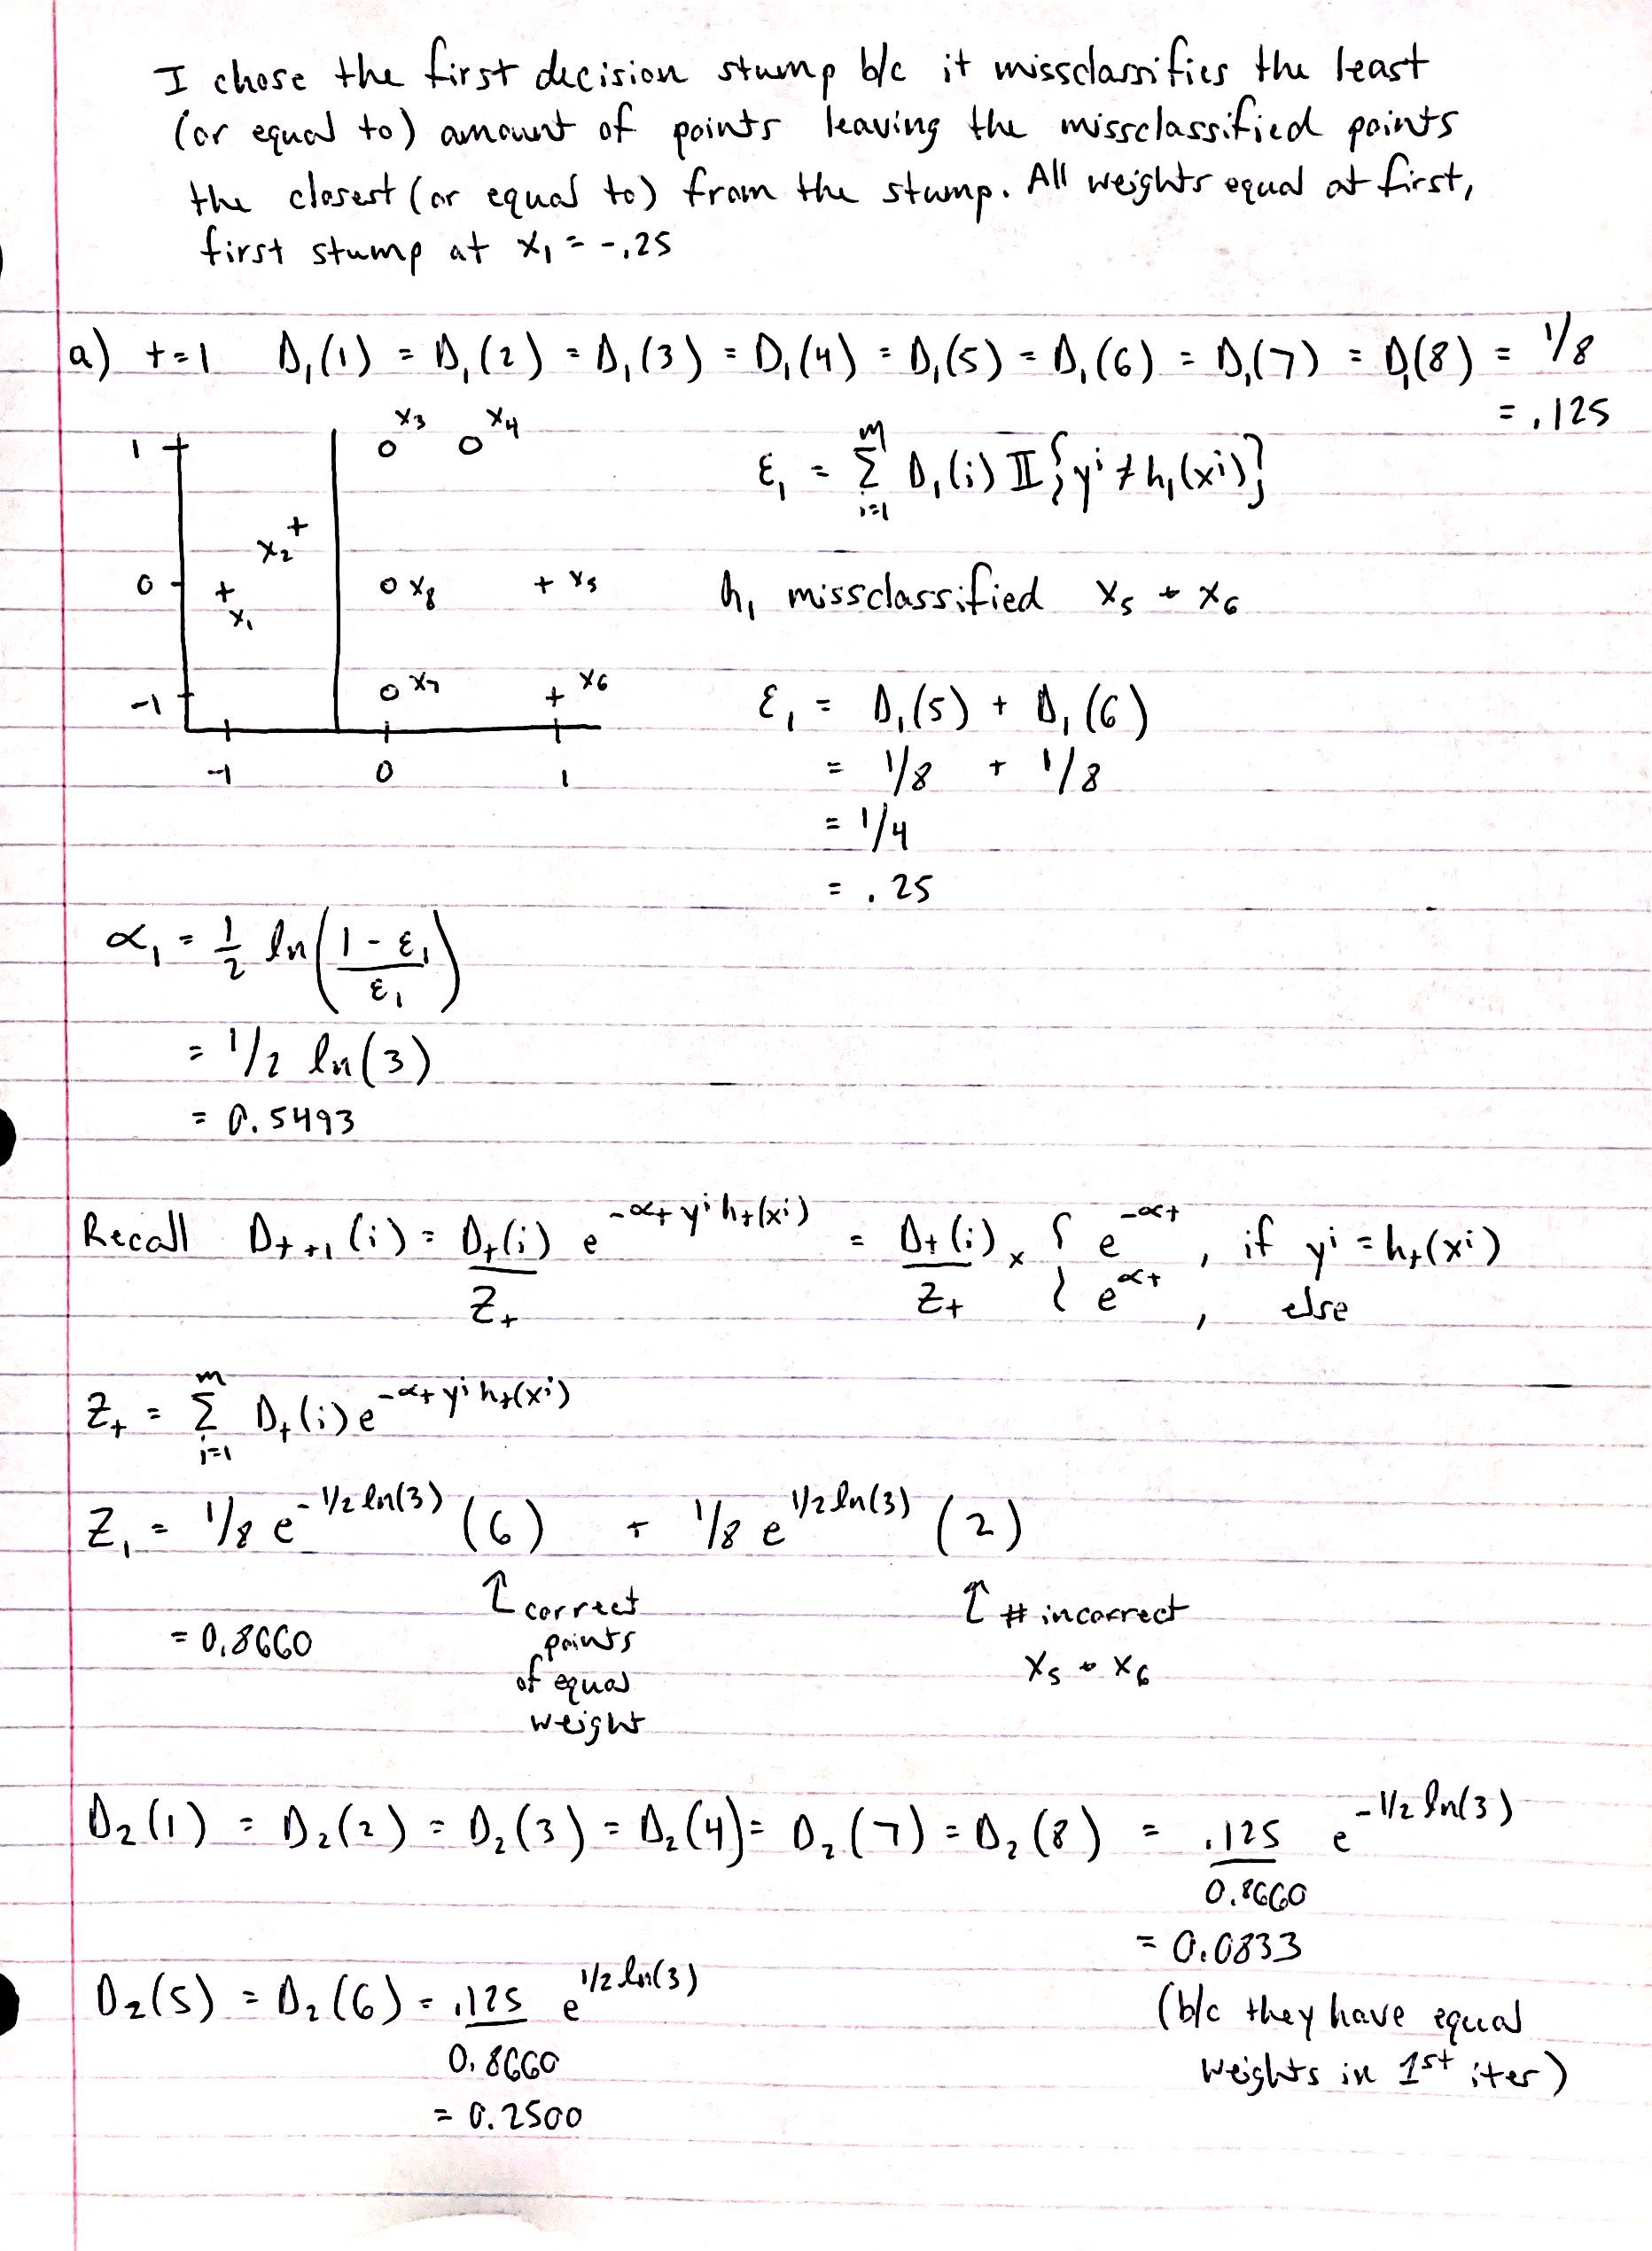 I chose the first decision stump b/c it missclassifies the least
(or equal to) amount of points leaving the missclassified points
the closest (or equal to) from the stump. All weights equal at first,
first stump at x₁ = -.25
a) t=1 D₁(1) = D₁(2) = D₁(3) = D₁(4) = D₁(5) = D₁(6) = D₁(7) = D₁(8) = 1/8
= .125
x₃ x₄
1 o o
ε₁ = Σᵢ₌₁ᵐ D₁(i) 𝕀{yⁱ ≠ h₁(xⁱ)}
x₂ +
0 + o x₈ + x₅
x₁
h₁ missclassified x₅ + x₆
-1 o x₇ + x₆
-1 0 1
ε₁ = D₁(5) + D₁(6)
= 1/8 + 1/8
= 1/4
= .25
α₁ = 1/2 ln((1 - ε₁)/ε₁)
= 1/2 ln(3)
= 0.5493
Recall Dₜ₊₁(i) = Dₜ(i)/Zₜ e^(-αₜ yⁱ hₜ(xⁱ)) = Dₜ(i)/Zₜ x { e^(-αₜ), if yⁱ = hₜ(xⁱ)
e^(αₜ), else
Zₜ = Σᵢ₌₁ᵐ Dₜ(i) e^(-αₜ yⁱ hₜ(xⁱ))
Z₁ = 1/8 e^(-1/2 ln(3)) (6) + 1/8 e^(1/2 ln(3)) (2)
↑ correct
points
of equal
weight
↑ # incorrect
x₅ + x₆
= 0.8660
D₂(1) = D₂(2) = D₂(3) = D₂(4) = D₂(7) = D₂(8) = .125/0.8660 e^(-1/2 ln(3))
= 0.0833
(b/c they have equal
weights in 1st iter)
D₂(5) = D₂(6) = .125/0.8660 e^(1/2 ln(3))
= 0.2500